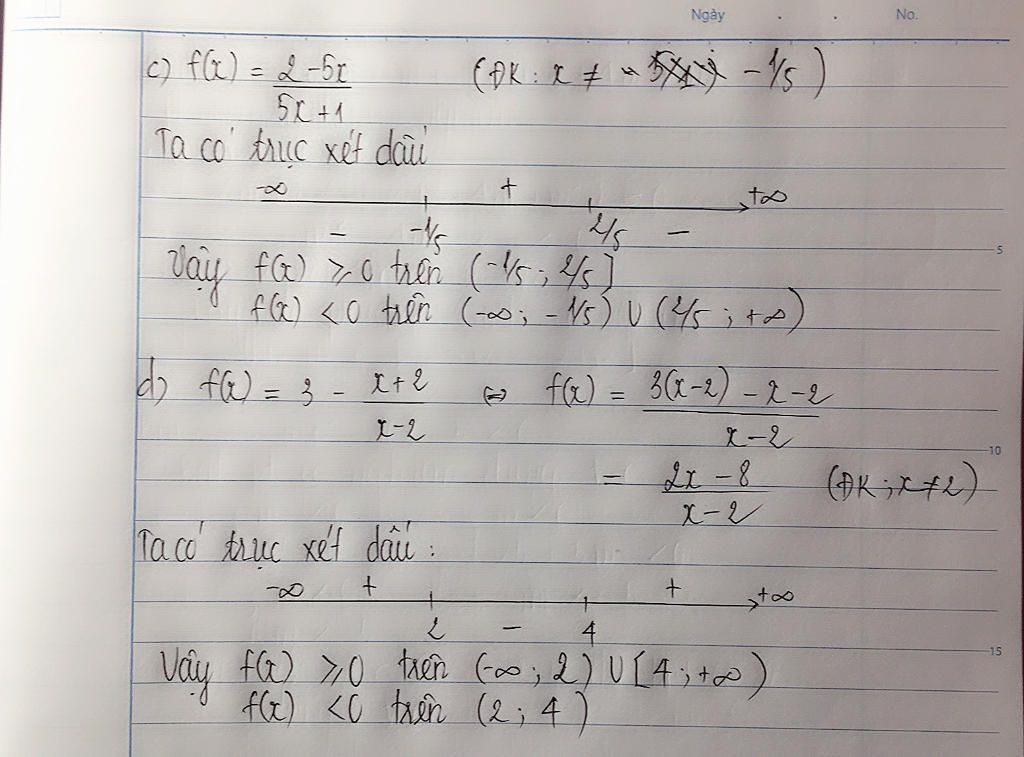 Ngày . . No.
c) f(x) = (2 - 5x)/(5x + 1) (ĐK : x ≠ - 1/5)
Ta có trục xét dấu
-∞ + +∞
- -1/5 2/5 -
5
Vậy f(x) ⩾ 0 trên (-1/5 ; 2/5]
f(x) < 0 trên (-∞ ; -1/5) ∪ (2/5 ; +∞)
d) f(x) = 3 - (x + 2)/(x - 2) ⇔ f(x) = (3(x - 2) - x - 2)/(x - 2)
10
= (2x - 8)/(x - 2) (ĐK ; x ≠ 2)
Ta có trục xét dấu :
-∞ + + +∞
2 - 4
15
Vậy f(x) ⩾ 0 trên (-∞ ; 2) ∪ [4 ; +∞)
f(x) < 0 trên (2 ; 4)